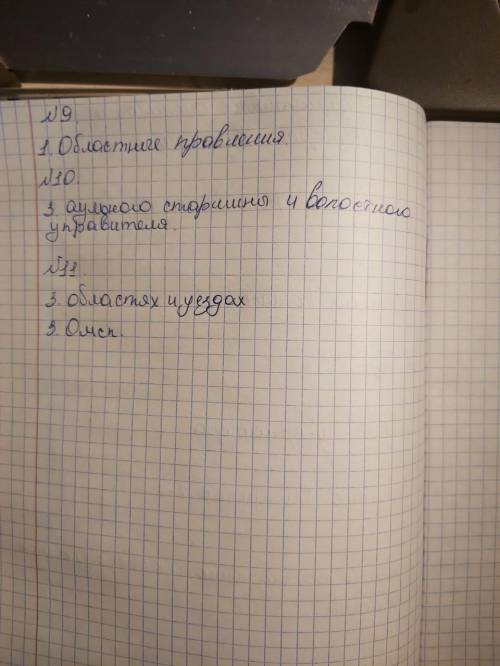 №9.
1. Областные правления.
№10.
3 аульного старшины и волостного
управителя.
№11.
3. областях и уездах
3. Омск.